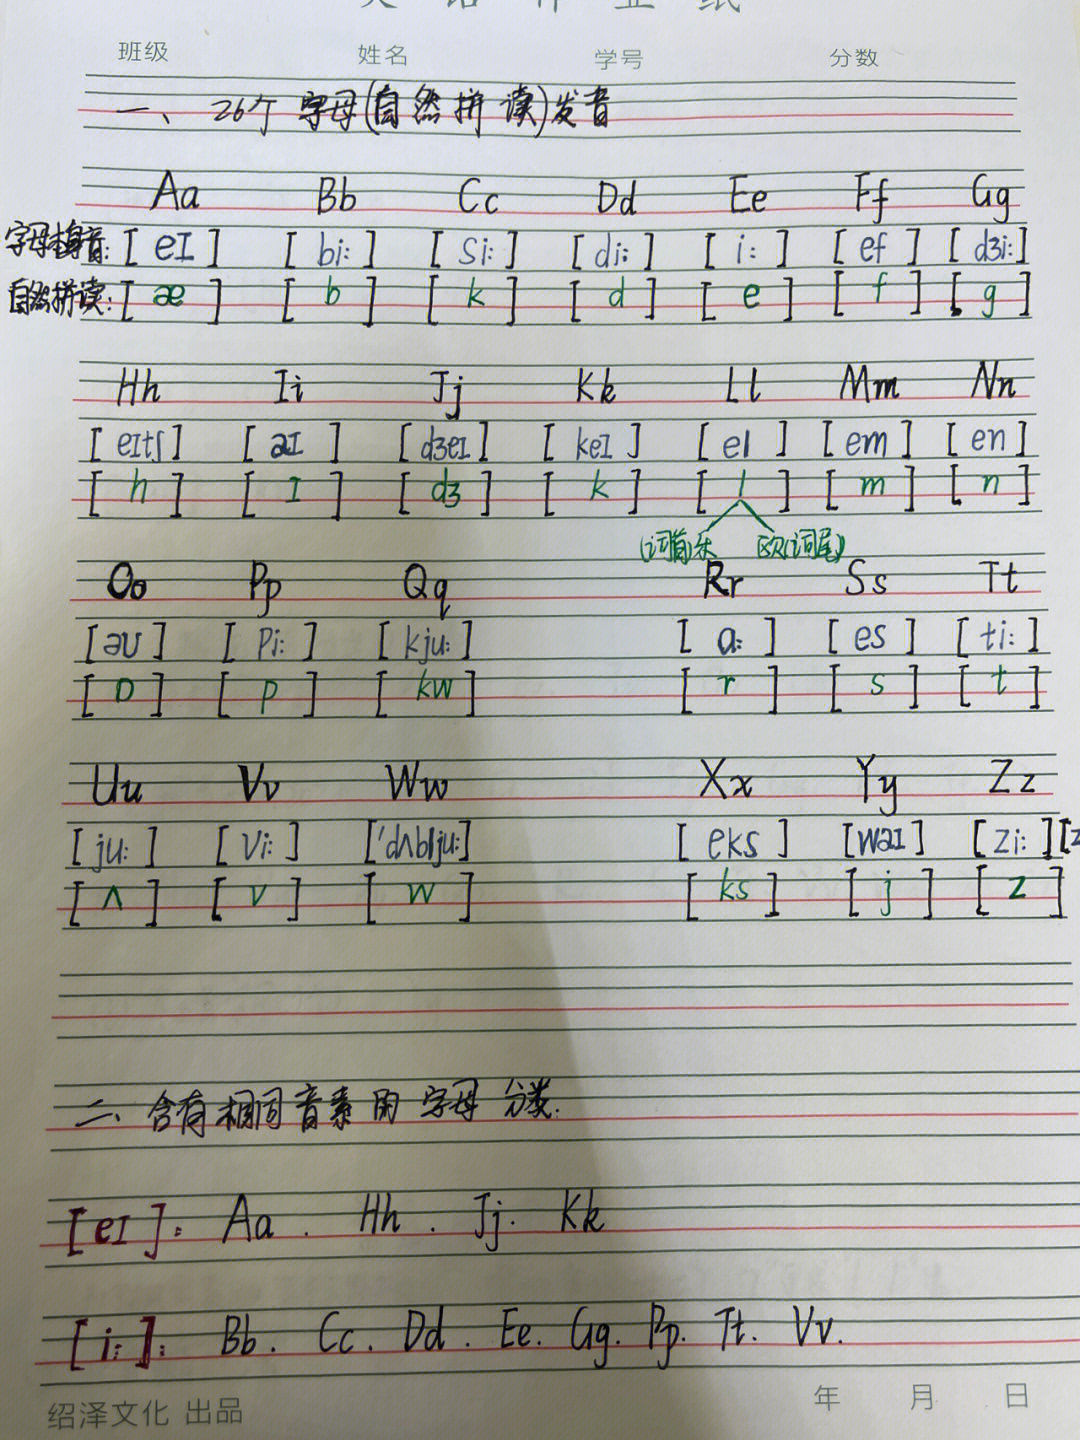 英 语 作 业 纸
班级 姓名 学号 分数
一、26个字母(自然拼读)发音
Aa Bb Cc Dd Ee Ff Gg
字母本身音: [eɪ] [bi:] [si:] [di:] [i:] [ef] [dʒi:]
自然拼读: [æ] [b] [k] [d] [e] [f] [g]
Hh Ii Jj Kk Ll Mm Nn
[eɪtʃ] [aɪ] [dʒeɪ] [keɪ] [el] [em] [en]
[h] [ɪ] [dʒ] [k] [l] [m] [n]
(词首)乐 欧(词尾)
Oo Pp Qq Rr Ss Tt
[əʊ] [pi:] [kju:] [a:] [es] [ti:]
[ɒ] [p] [kw] [r] [s] [t]
Uu Vv Ww Xx Yy Zz
[ju:] [vi:] ['dʌblju:] [eks] [waɪ] [zi:] [z
[ʌ] [v] [w] [ks] [j] [z]
二、含有相同音素的字母分类.
[eɪ]: Aa. Hh. Jj. Kk
[i:]: Bb. Cc. Dd. Ee. Gg. Pp. Tt. Vv.
绍泽文化 出品 年 月 日